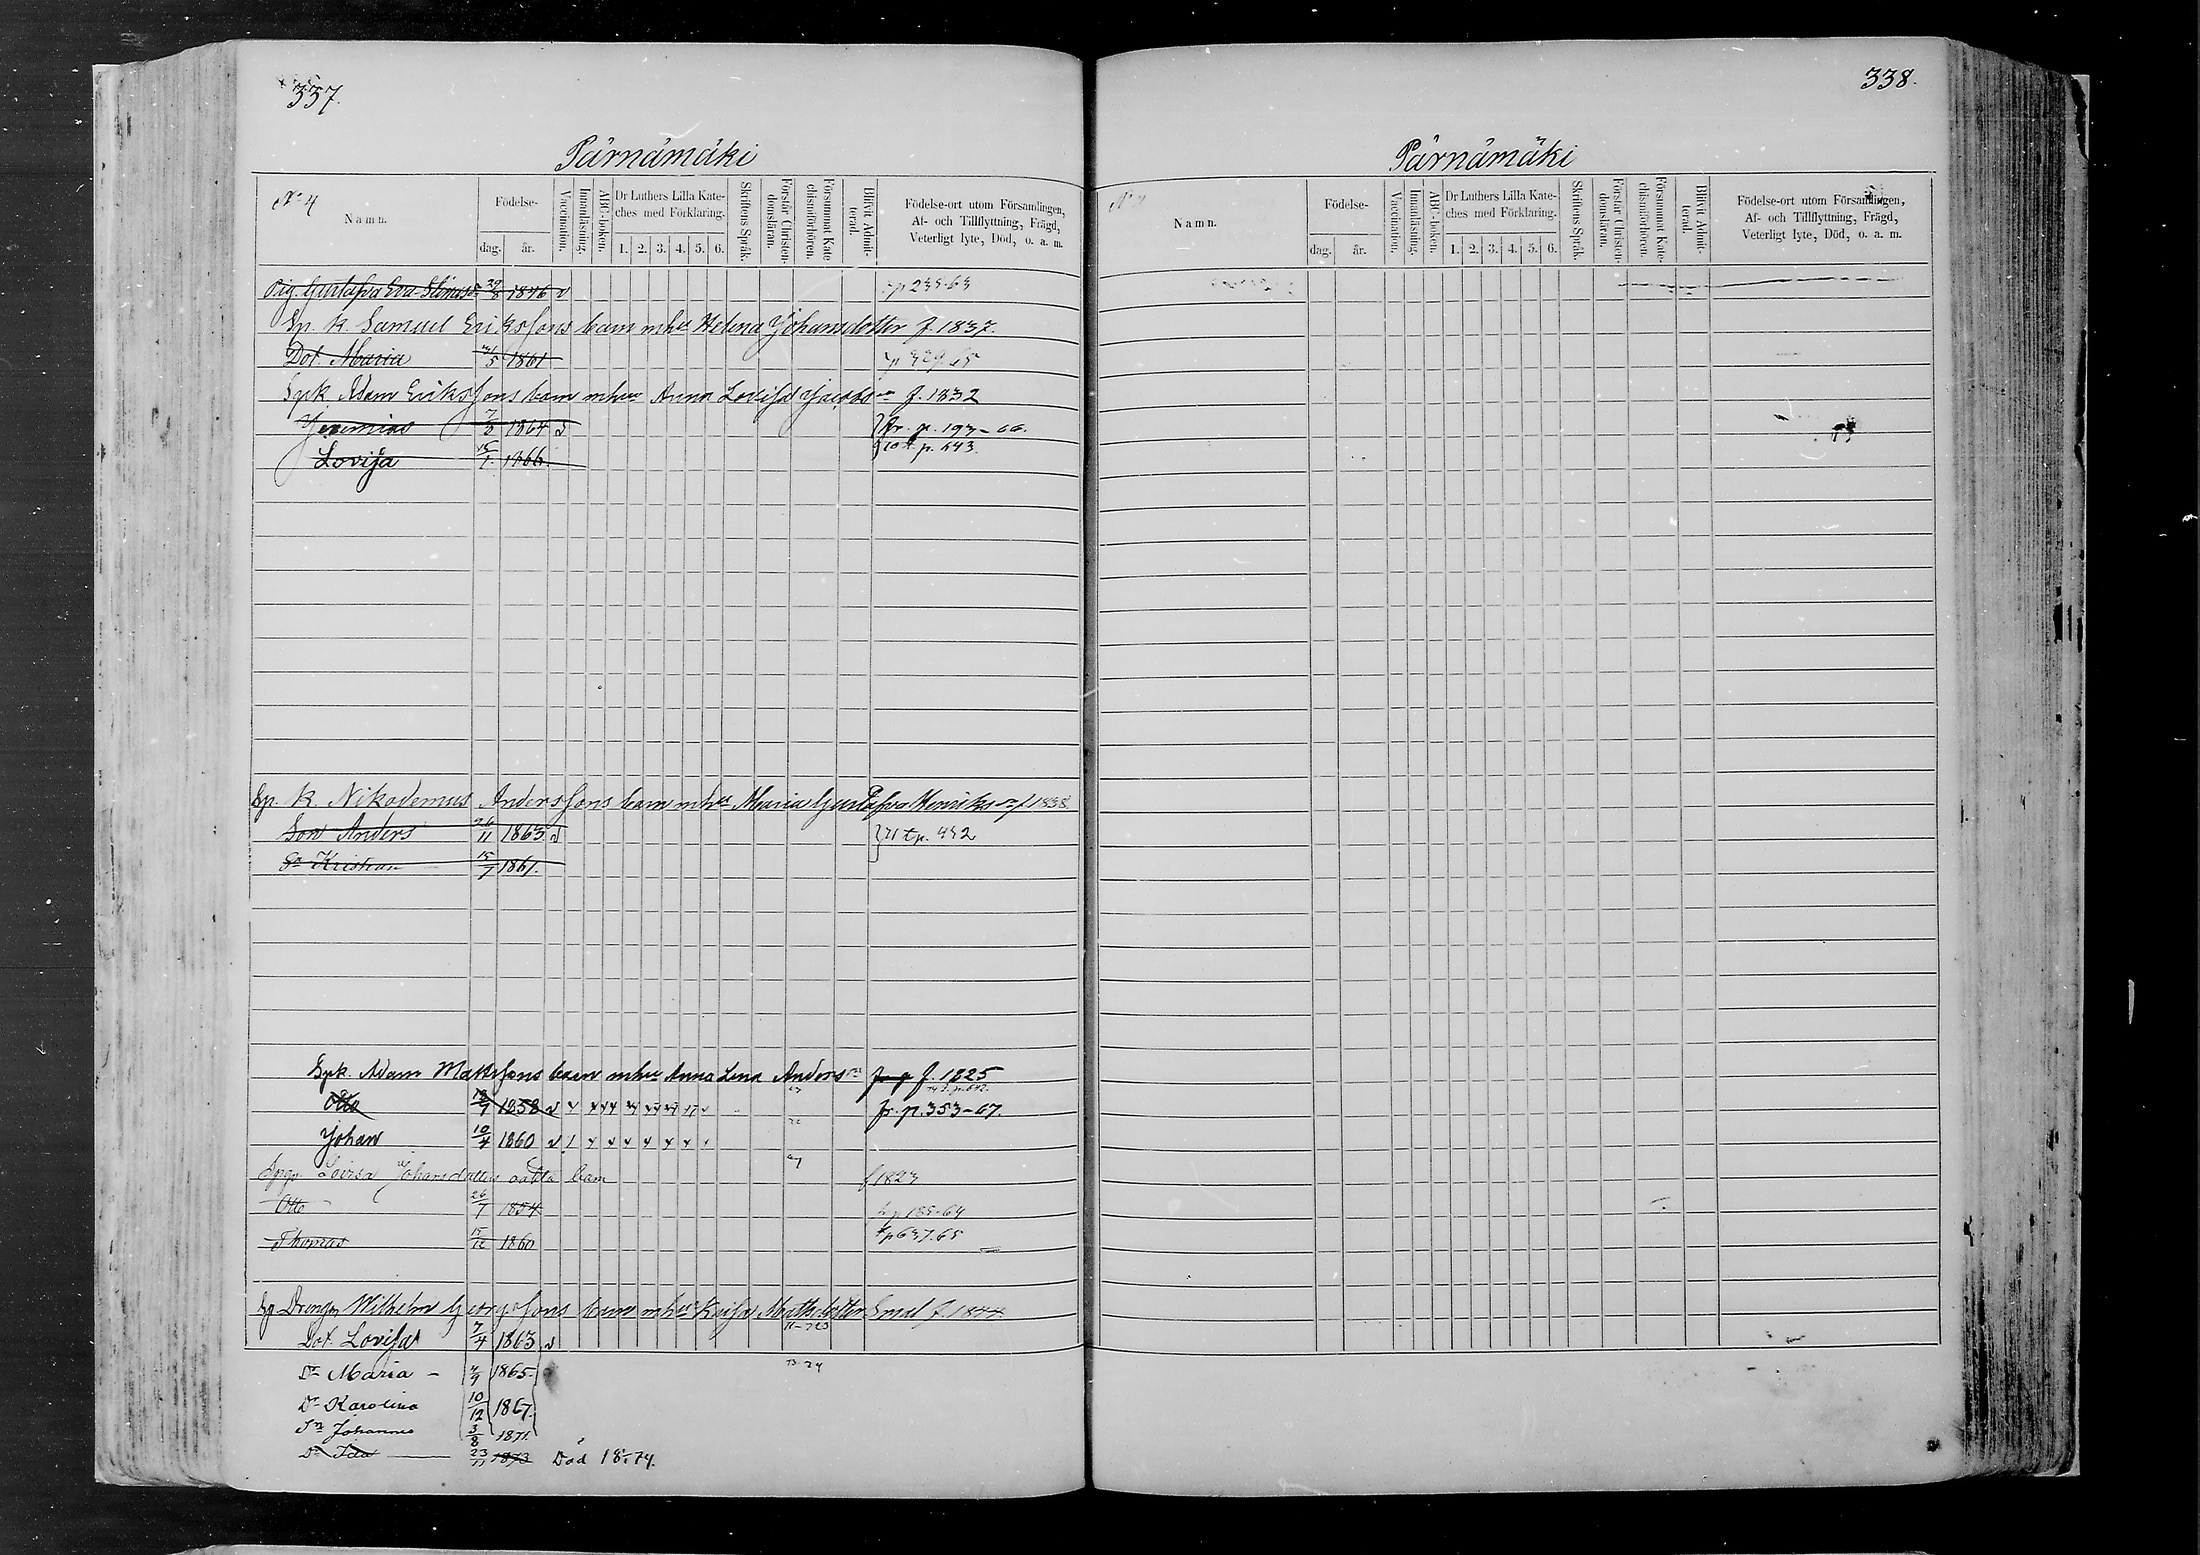 337.
Pärnämäki
No 4
Namn.
Födelse-
dag.
år.
Vaccination.
Innanläsning.
ABC-boken.
Dr Luthers Lilla Kate-
ches med Förklaring.
1. 2. 3. 4. 5. 6.
Skriftens Språk.
Förstår Christen-
domsläran.
Försummat Kate
chismiförhören.
Blifvit Admit-
terad.
Födelse-ort utom Församlingen,
Af- och Tillflyttning, Frägd,
Veterligt lyte, Död, o. a. m.
Pig. Gustafva Eva Stina 29/8 1846 v p 235.63
Sp. k. Samuel Erikssons barn m hu Helena Johansdotter f. 1837.
Dot. Maria 1861 p 329.65
Spk Adam Erikssons barn m hu Anna Lovisa Jacobs f. 1832
Jeremias 1864 v fr. p. 193-66.
Lovisa 1866. p. 643.
Sp. k. Nikodemus Anderssons barn m hu Maria Gustafva Henriks f 1838.
Son Anders 26/11 1863 v 71 t p. 442
So Kristian 15/7 1861.
Spk. Adam Mattssons barn m hu Anna Lena Anders f. 1825
Otto 1858 v fr. p. 353-67.
Johan 10/4 1860 v
Lovisa Johansdotters oäkta barn f 1823
Otto 26/7 1854 p 185-64
Thomas 15/12 1860 p 637.65
Sp Drengen Wilhelm Georgssons barn m hu Kaisa Mathsdotter Smal f. 1844.
Dot. Lovisa 7/4 1863 v
Dr Maria - 1865.
Dr Karolina 10/12 1867.
Sn Johannes 3/8 1871.
Dr Ida 23/11 1873 Död 18 74.
338.
Pärnämäki
Namn.
Födelse-
dag.
år.
Vaccination.
Innanläsning.
ABC-boken.
Dr Luthers Lilla Kate-
ches med Förklaring.
1. 2. 3. 4. 5. 6.
Skriftens Språk.
Förstår Christen-
domsläran.
Försummat Kate-
chismiförhören.
Blifvit Admit-
terad.
Födelse-ort utom Församlingen,
Af- och Tillflyttning, Frägd,
Veterligt lyte, Död, o. a. m.